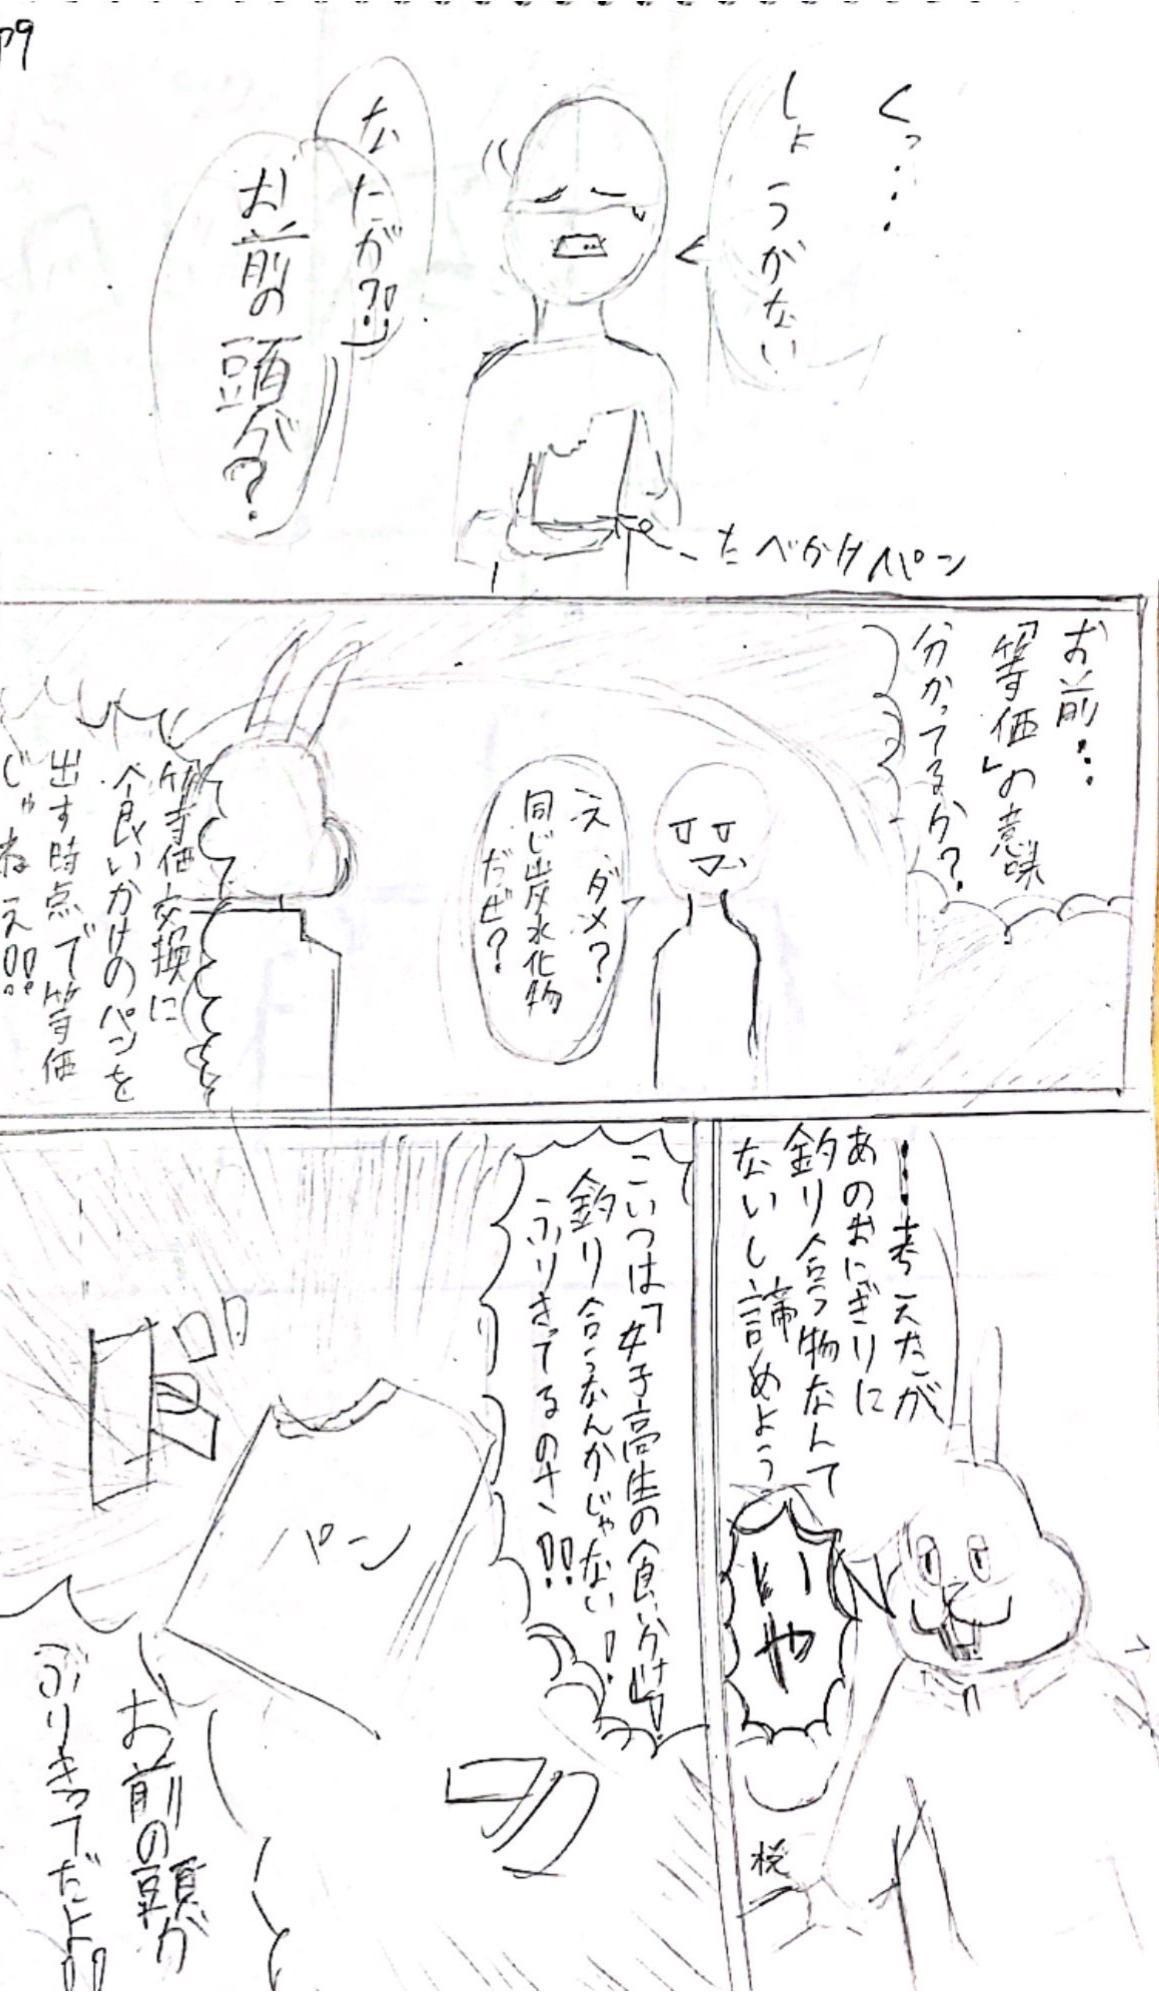 P9
くっ…
しょうがない
なにが?!!
お前の頭が?
たべかけパン
お前…
「等価」の意味
分かってるか?
え ダメ?
同じ炭水化物
だぜ?
等価交換に
食いかけのパンを
出す時点で等価
じゃねえ!!
…考えたが
あのおにぎりに
釣り合う物なんて
ないし諦めよう
いや
こいつは「女子高生の食いかけ」!
釣り合うなんかじゃない!
ふりきってるのさ!!
ド
パン
お前の頭が
ふりきってだよ!!